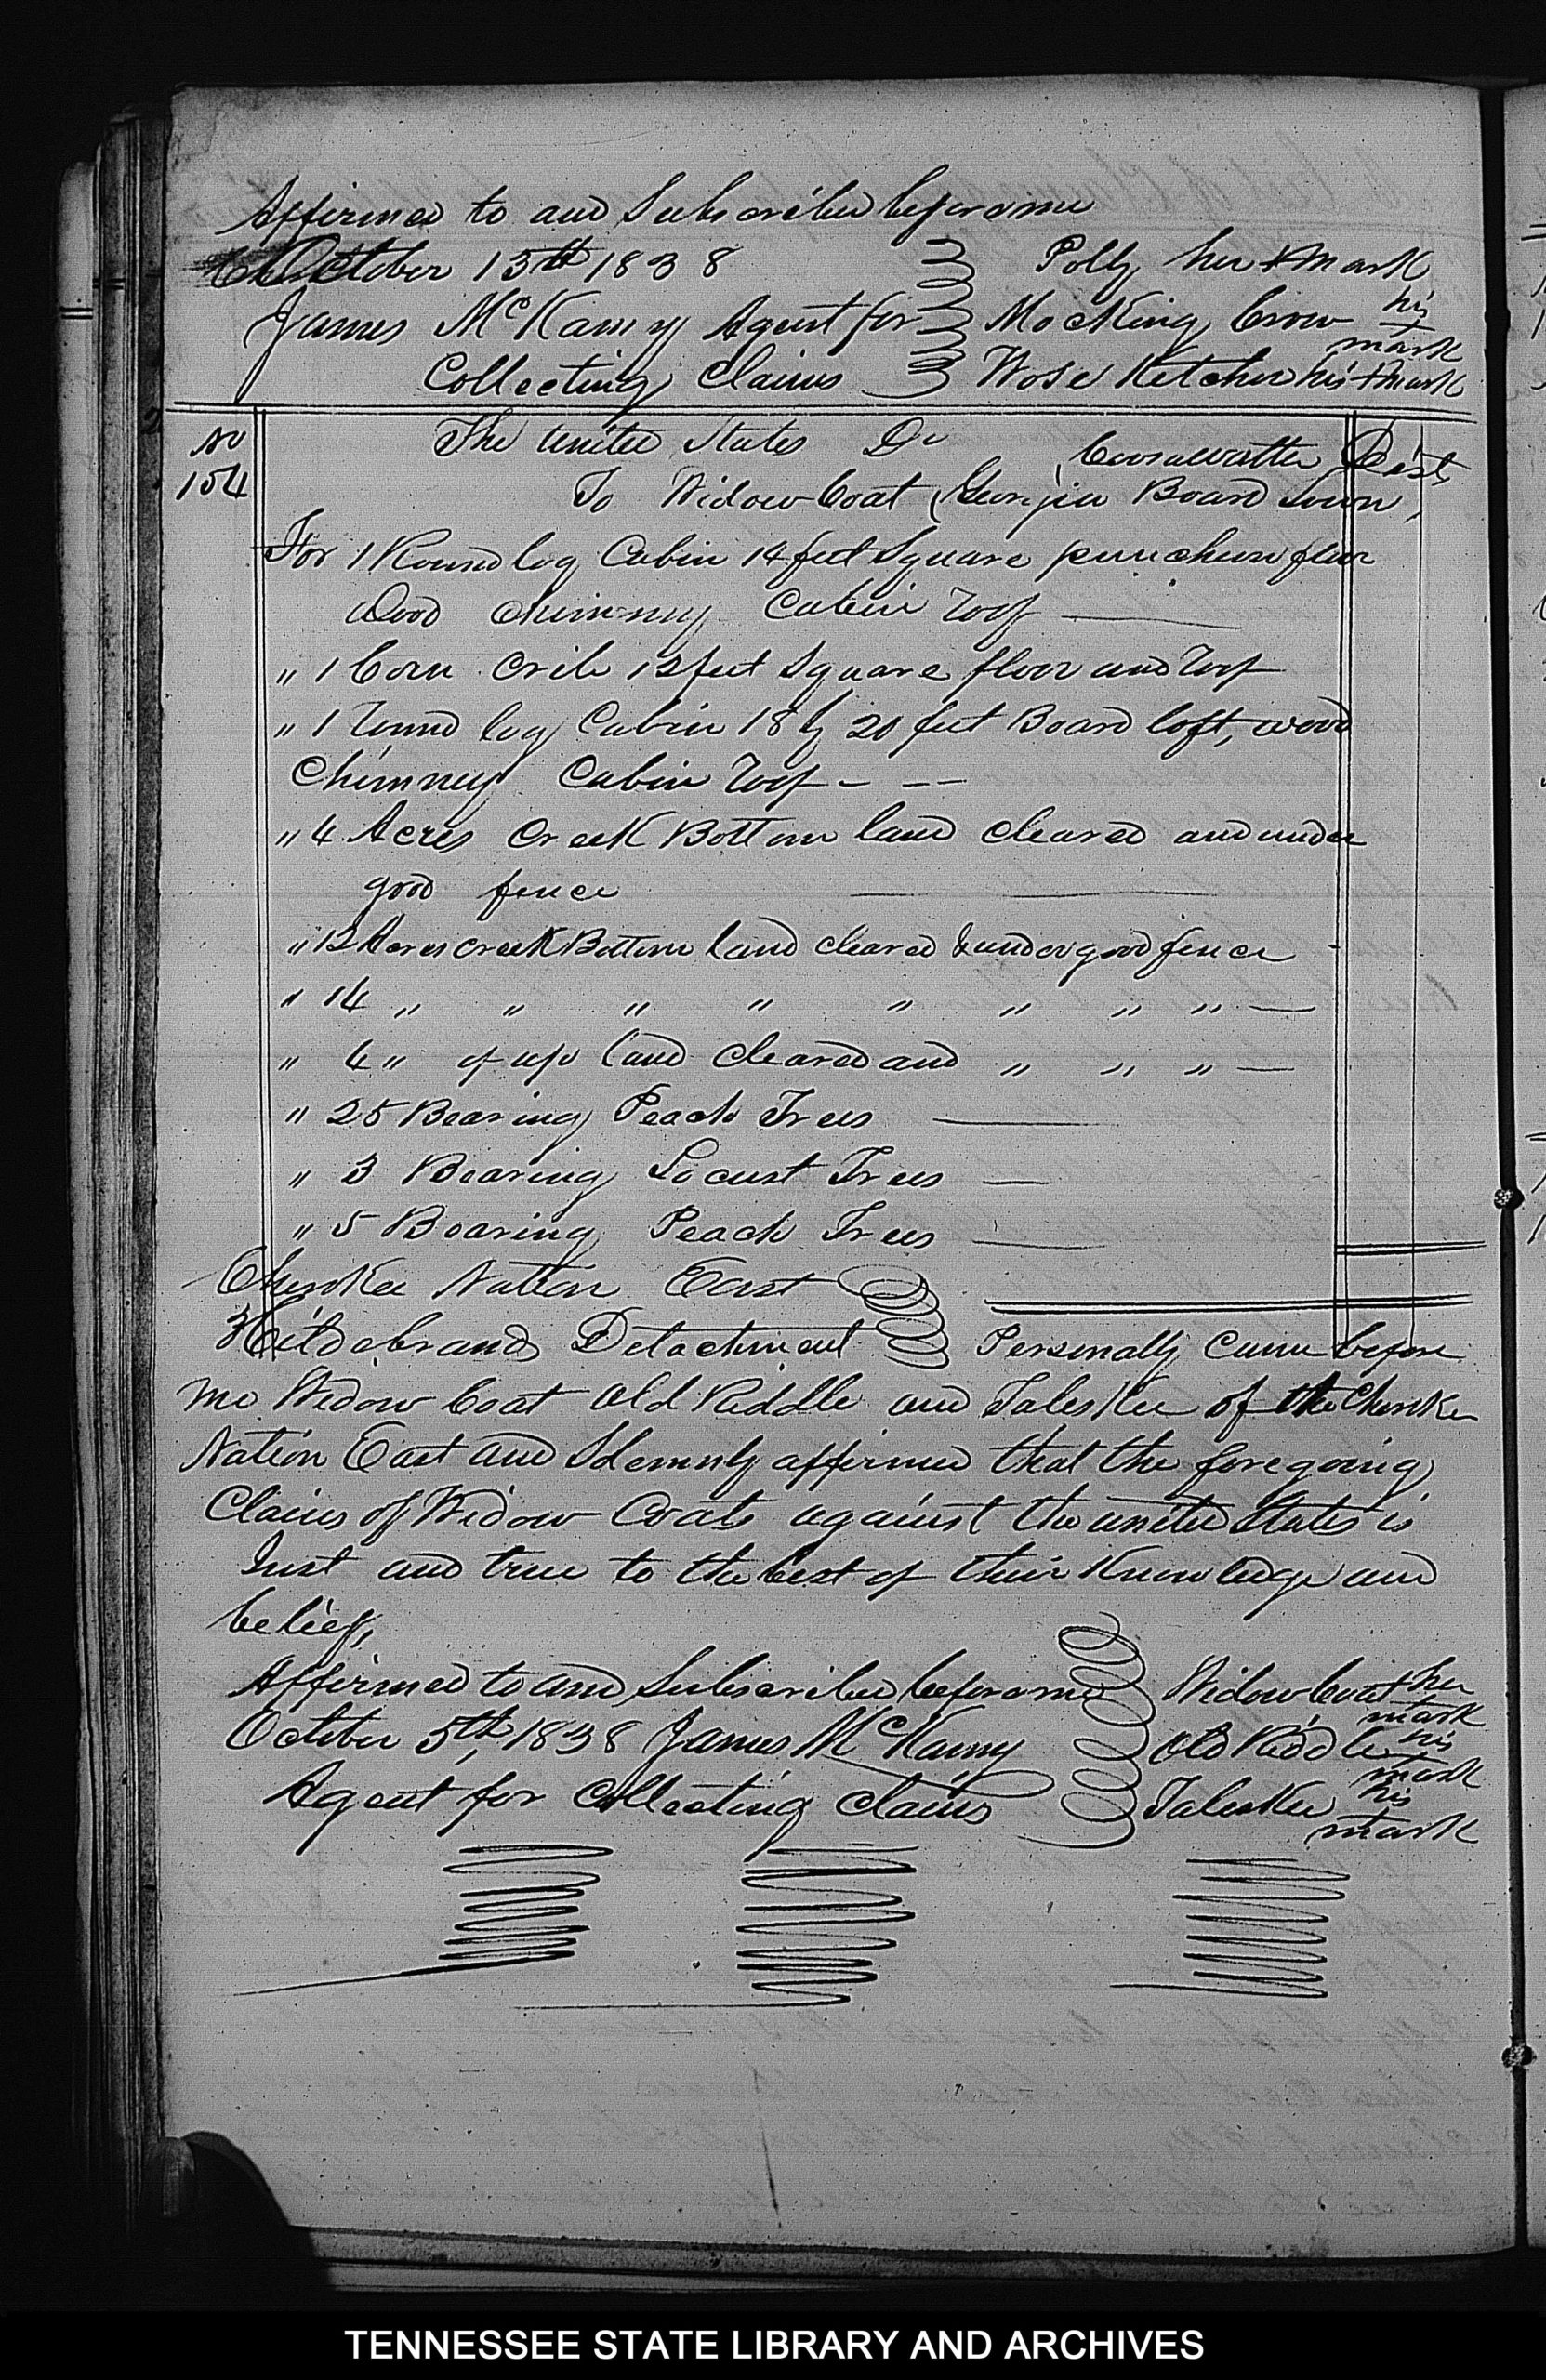 Affirmed to and Subscribed before me
October 13th 1838 Polly her + mark
James McKamy Agent for Mocking Crow his + mark
Collecting Claims Wose Ketcher his + mark
No 154 The United States Dr Coosawattee Dist
To Widow Coat Georgia Board Town,
For 1 Round log Cabin 14 feet Square puncheon floor
Wood chimney Cabin roof
" 1 Corn Crib 12 feet Square floor and roof
" 1 round log Cabin 18 by 20 feet Board loft, wood
Chimney Cabin roof - - -
" 4 Acres Creek Bottom land cleared and under
good fence
" 12 Acres creek Bottom land cleared & under good fence
" 14 " " " " " " " "
" 4 " of up land cleared and " " "
" 25 Bearing Peach Trees
" 3 Bearing Locust Trees
" 5 Bearing Peach Trees
Cherokee Nation East
Hildebrands Detachment Personally came before
me Widow Coat Old Riddle and Taleskee of the Cherokee
Nation East and Solemnly affirmed that the foregoing
Claims of Widow Coats against the united States is
Just and true to the best of their Knowledge and
belief,
Affirmed to and Subscribed before me Widow Coat + her mark
October 5th, 1838 James McKamy Old Riddle his mark
Agent for Collecting claims Taleskee his mark
TENNESSEE STATE LIBRARY AND ARCHIVES